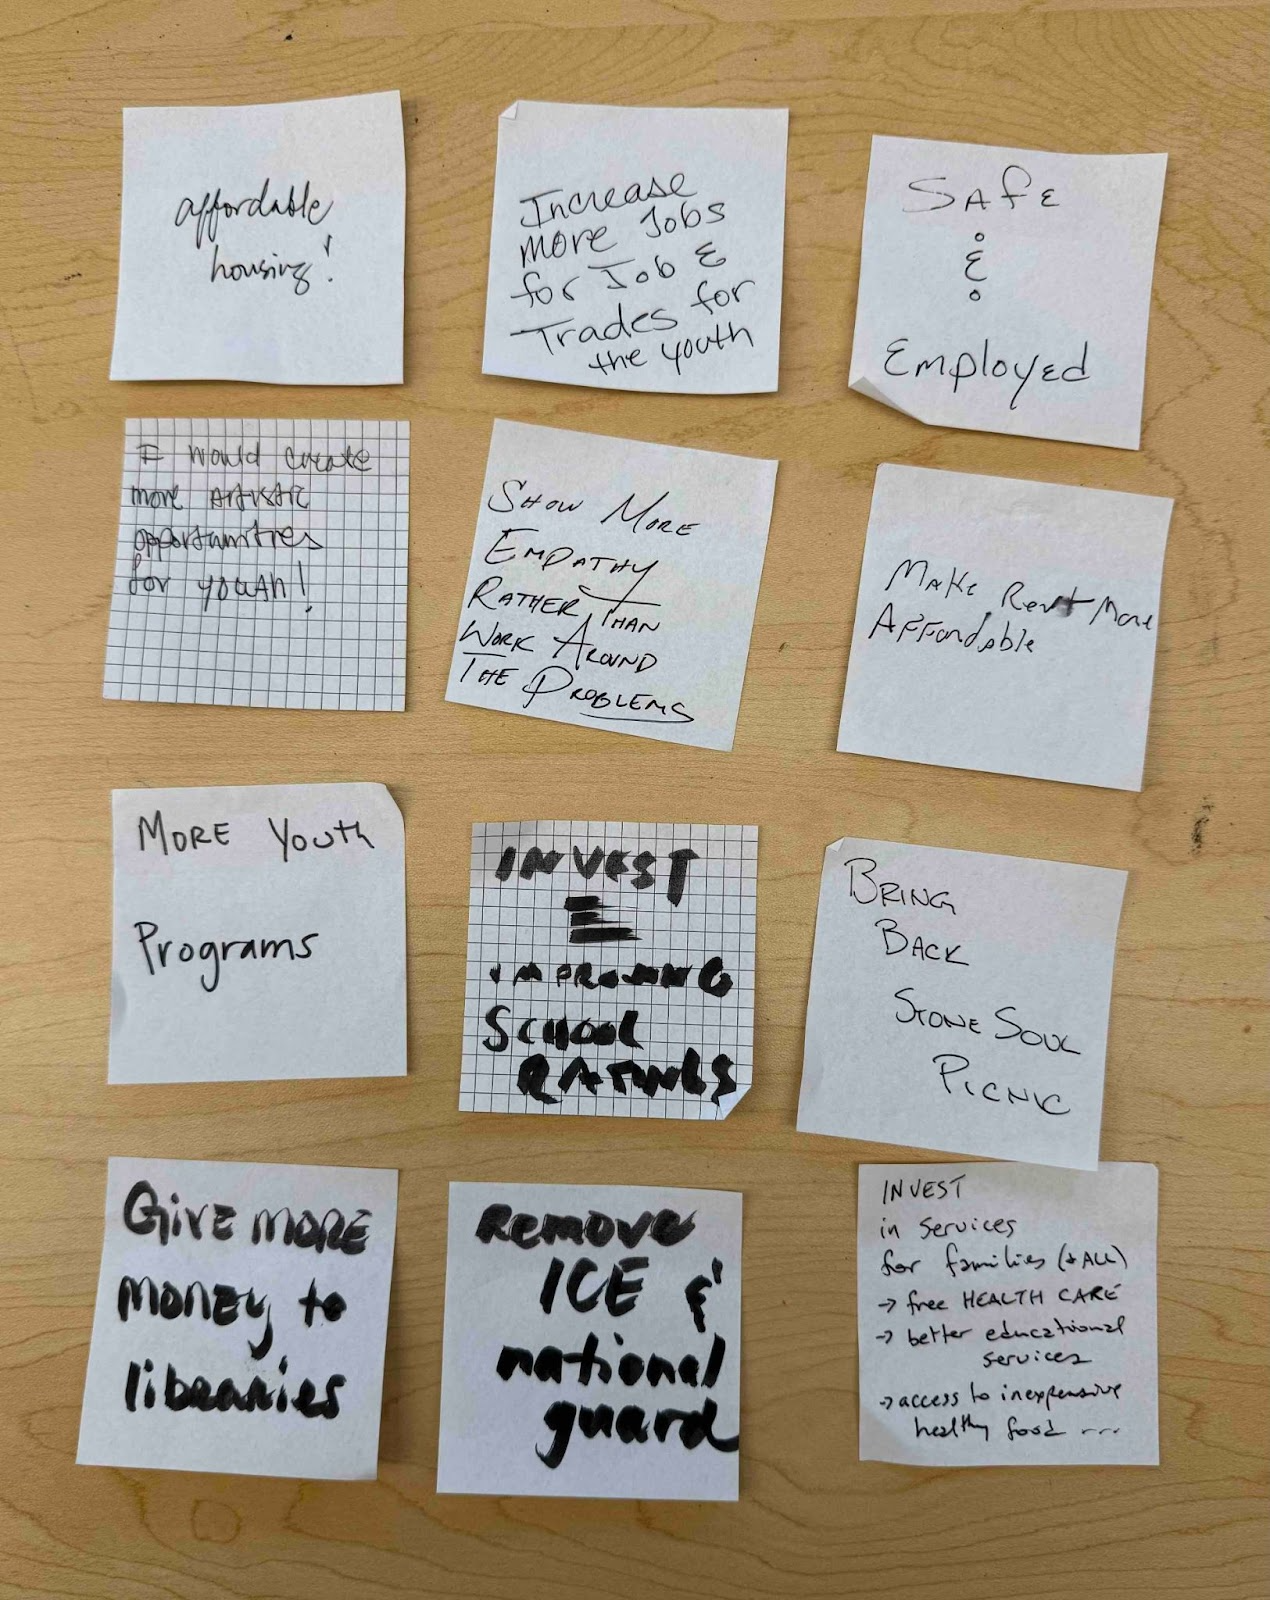 affordable
housing!
Increase
more Jobs
for Job &
Trades for
the youth
SAFE
&
EmployED
I would create
more Artistic
opportunities
for youth!
SHOW MORE
EMPATHY
RATHER THAN
WORK AROUND
THE PROBLEMS
MAKE Rent More
AFFordable
MORE Youth
Programs
INVEST
IMPROVING
SCHOOL
RATINGS
BRING
BACK
STONE SOUL
PICNIC
GIVE MORE
MONEY to
libraries
Remove
ICE &
national
guard
INVEST
in services
for families (+ ALL)
→ free HEALTH CARE
→ better educational
services
→ access to inexpensive
healthy food ....